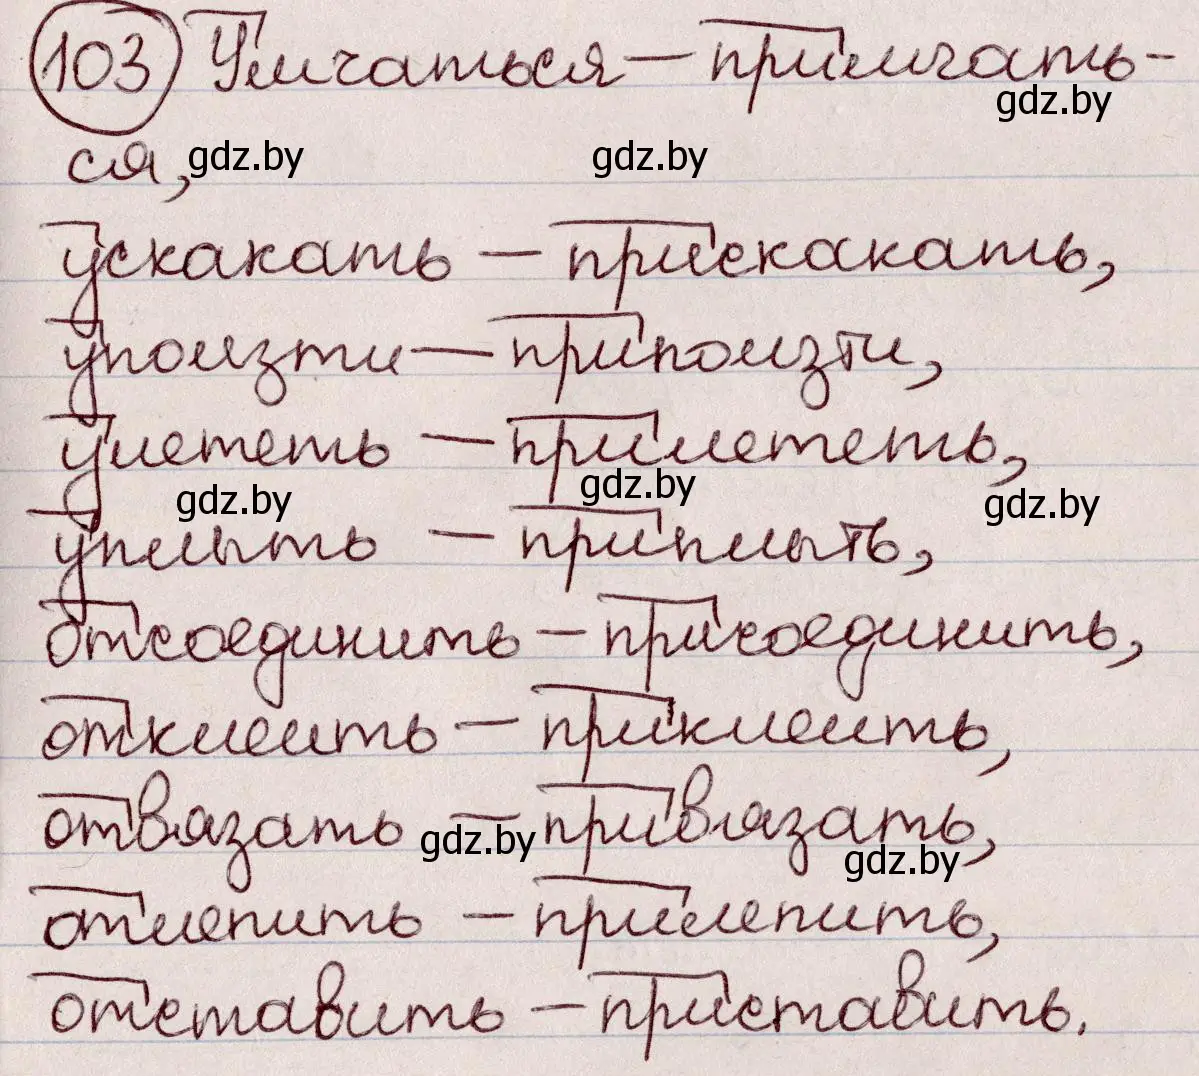 103 Умчаться — примчать-
ся,
ускакать — прискакать,
уползти — приползти,
улететь — прилететь,
уплыть — приплыть,
отсоединить — присоединить,
отклеить — приклеить,
отвязать — привязать,
отлепить — прилепить,
отставить — приставить.
gdz.by
gdz.by
gdz.by
gdz.by
gdz.by
gdz.by
gdz.by
gdz.by